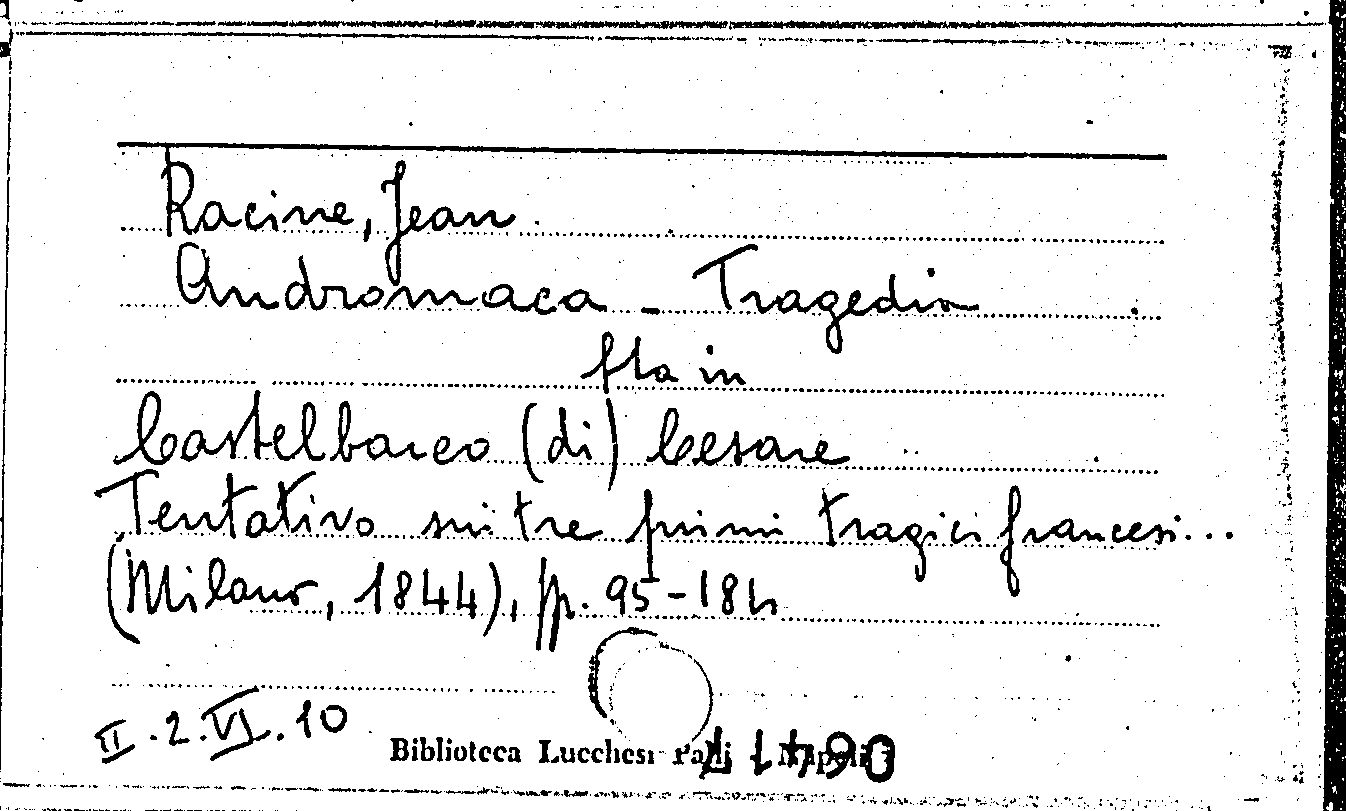 Racine, Jean.
Andromaca - Tragedia
sta in
Castelbarco (di) Cesare
Tentativo sui tre primi tragici francesi...
(Milano, 1844), pp. 95-184
II.2.VI.10
Biblioteca Lucchesi Palli - Napoli